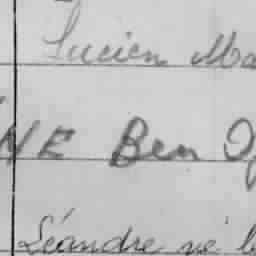 Lucien Ma
NE Ben
Léandre né